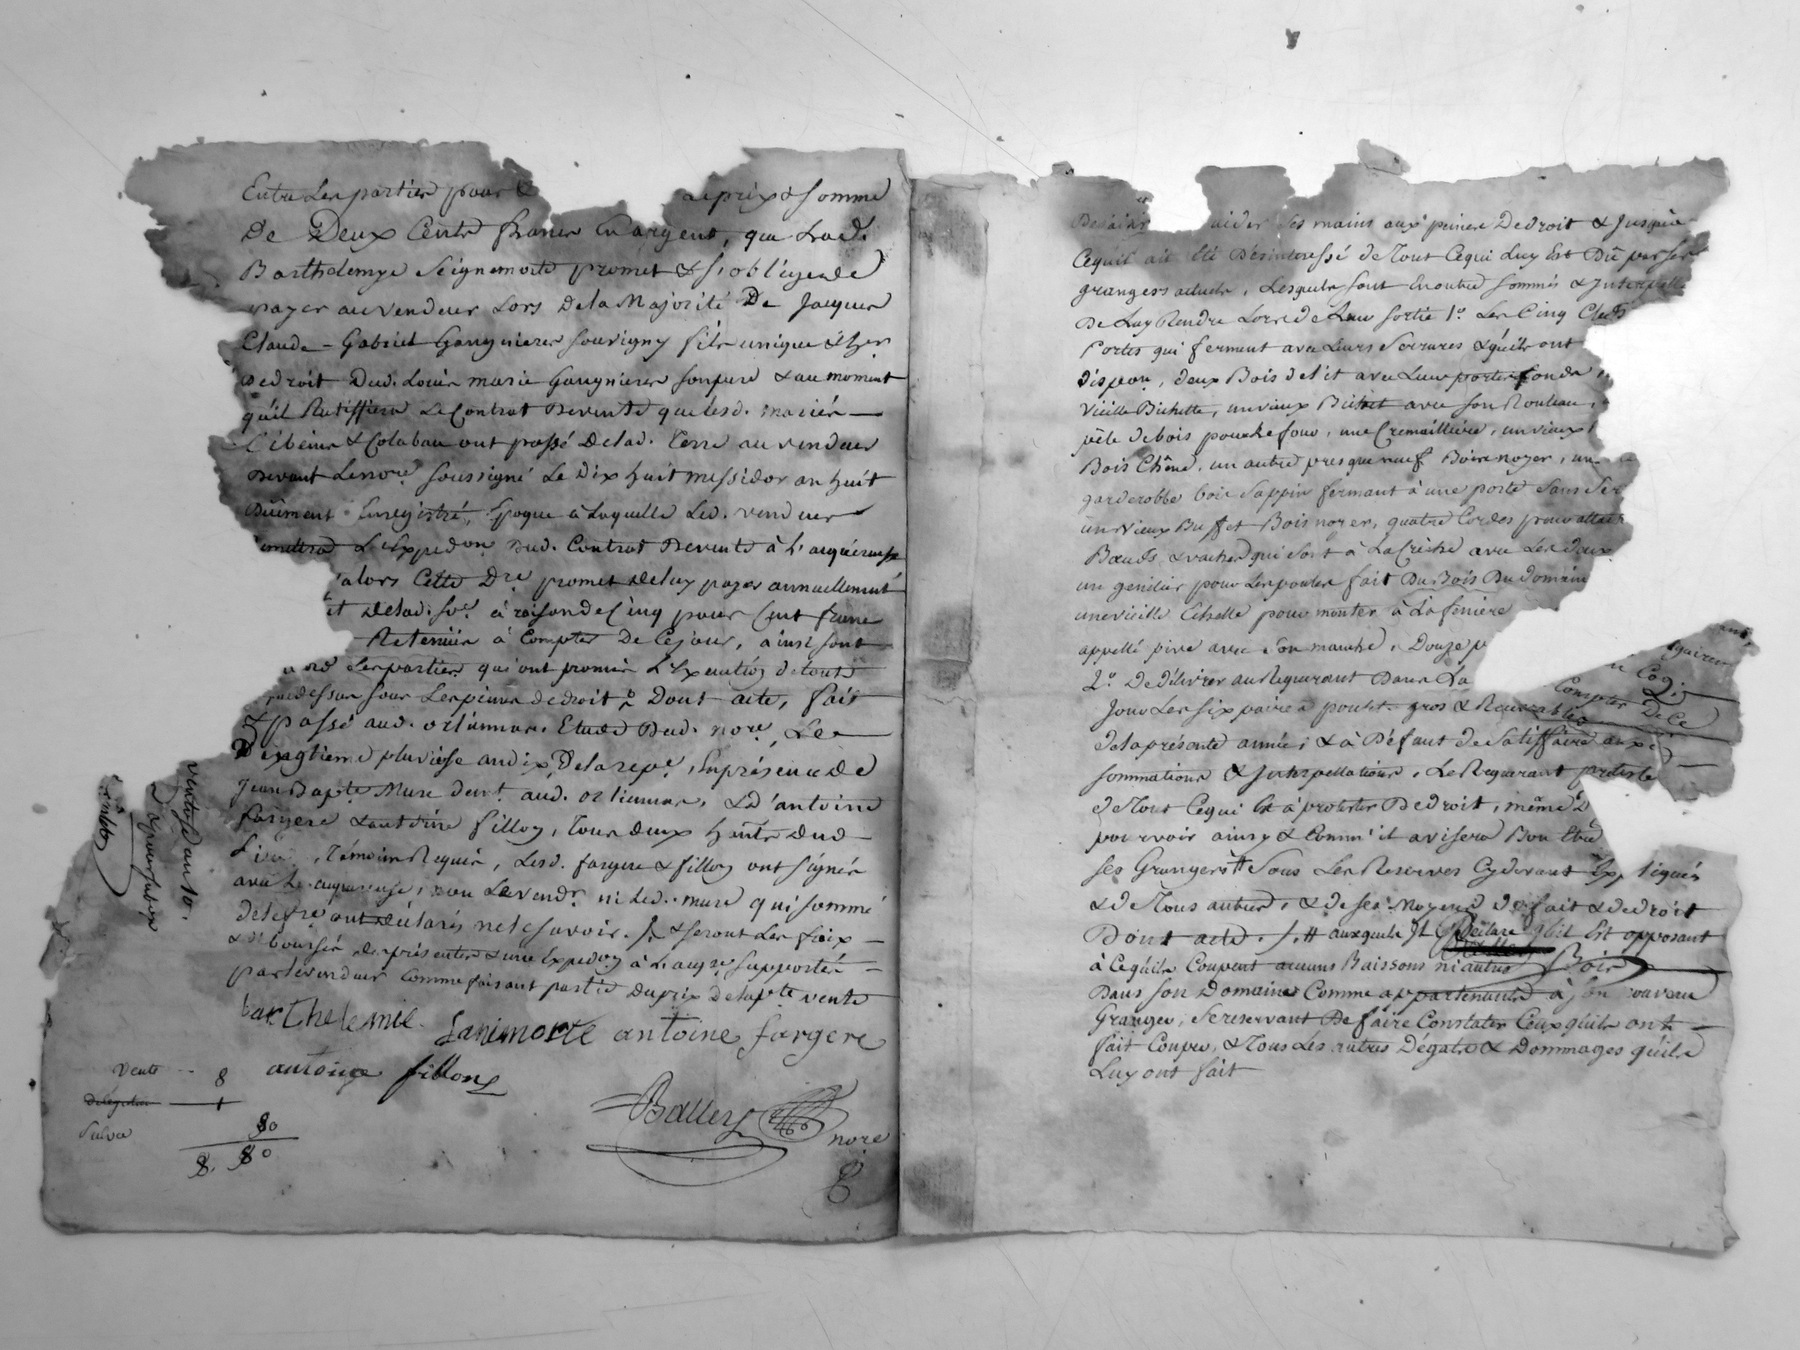 Entre Les parties pour Le prix & somme
De Deux Cents francs En argent, que Lad.
Barthelemye Seignemorte promet & s'oblige de
payer au vendeur Lors De la Majorité De Jacques
Claude-Gabriel Gangnieres souvigny fils unique & her
De droit Dud. Louis marie Gangnieres son pere & au moment
qu'il Ratiffiera Le Contrat De vente que lesd. mariés
& Colabau ont passé De lad. Terre au vendeur
Devant Le nore. soussigné Le Dix huit messidor an huit
Duement Enregistré, Epoque à Laquelle Led. vendeur
L'Expedon. Dud. Contrat De vente à L'acquéreuse
alors Cette Dre. promet De luy payer annuellement
De lad. so. à raison de Cinq pour Cent franc
Retenües à Compter De Ce jour, ainsi sont
Les parties qui ont promis L'Execution de tout
dessus sous Les peines de droit Dont acte, fait
& passé aud. Etude Dud. nore. Le
pluviose an dix De la repe. En présence de
Jean Bapte. Mure aud. & d'antoine
fargere & antoine fillon, Tous deux hants. dud
Lieu, Témoins Requis, Lesd. fargere & fillon ont signés
avec L'acquereuse, non Le vendr. ni Led. mure qui sommé
de le fre. ont déclarés ne le savoir. & seront Les fraix
& Déboursés des présentes & une Expedon à L'acqre. supportés
par Le vendeur Comme faisant partie Du prix De la pte. vente
barthelemie Sanimorte antoine fargere
antoine fillon
Vente 8
Delegation 1
Subve 80
8. 80
Ballery nore
mains aux peines De droit & Jusqu'a
Cequil ait été Désinteressé de Tout Cequi Luy Est Dû par ses
grangers actuels, Lesquels sont En outre sommés &
De Luy Rendre Lors de Leur sortie 1°. Les Cinq
Portes qui ferment avec Leurs Serrures & qu'ils ont
deux Bois de lit avec Leur
vieille Bichette, un vieux avec son Rouleau,
pele de bois pour Le four, une Cremaillière, un vieux
Bois Chêne, un autre presque neuf Bois noyer, un
garderobbe bois Sappin fermant à une porte Sans Ser
un vieux Buffet Bois noyer, quatre Cordes pour
Bœufs & vaches qui sont à La Crèche avec Les deux
un genilier pour Les poules fait Du Bois Du domaine
une vieille Echelle pour monter à La feniere
appellé pive avec Son manche, Douze
2°. De délivrer au Requerant Dans La
jour Les six paires poulet gros & Recevables
de la présente année; & à Défaut de Satisfaire aux
sommations & Interpellations, Le Requerant proteste
de Tout Cequi Est à protester De droit, même
pourvoir ainsy & Comm' il avisera Bon
ses Grangers # Sous Les Reserves Cydevant Expliqués
& de Tous autres, & de ses Moyens de fait & de droit
Dont acte. # auxquels Il Déclare qu'il Est opposant
à Cequils Coupent aucuns Buissons ni autres Bois
Dans son Domaine Comme appartenants à son nouveau
Granger, se reservant De faire Constater Ceux qu'ils ont
fait Couper, & Tous Les autres Dégats & Dommages qu'ils
Luy ont fait